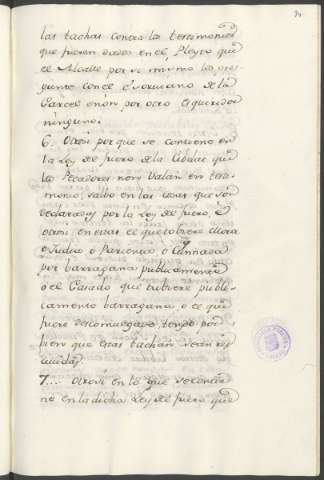 las tachas contra los testimonios
que fueren dados en el Pleyto que
el Alcalde por si mismo los pre-
gunte con el Escrivano de la
Carcel e non por otro Esquiridor
ninguno.
6. Otrosi por que se contiene en
la Ley del fuero de la Cibdat que
los Pecadores non valan en testi-
monio, salvo en las cosas que son
declaradas por la Ley del fuero, e
otrosi en esas, el que toviere Mora
o Judia o Parienta, o Cuñada
por barragana publicamente
o el Casado que toviere publi-
camente barragana, o el que
fuere descomulgado, tengo por
bien que estas tachas sean res-
cividas
7... Otrosi en lo que se contie-
ne en la dicha Ley del fuero que